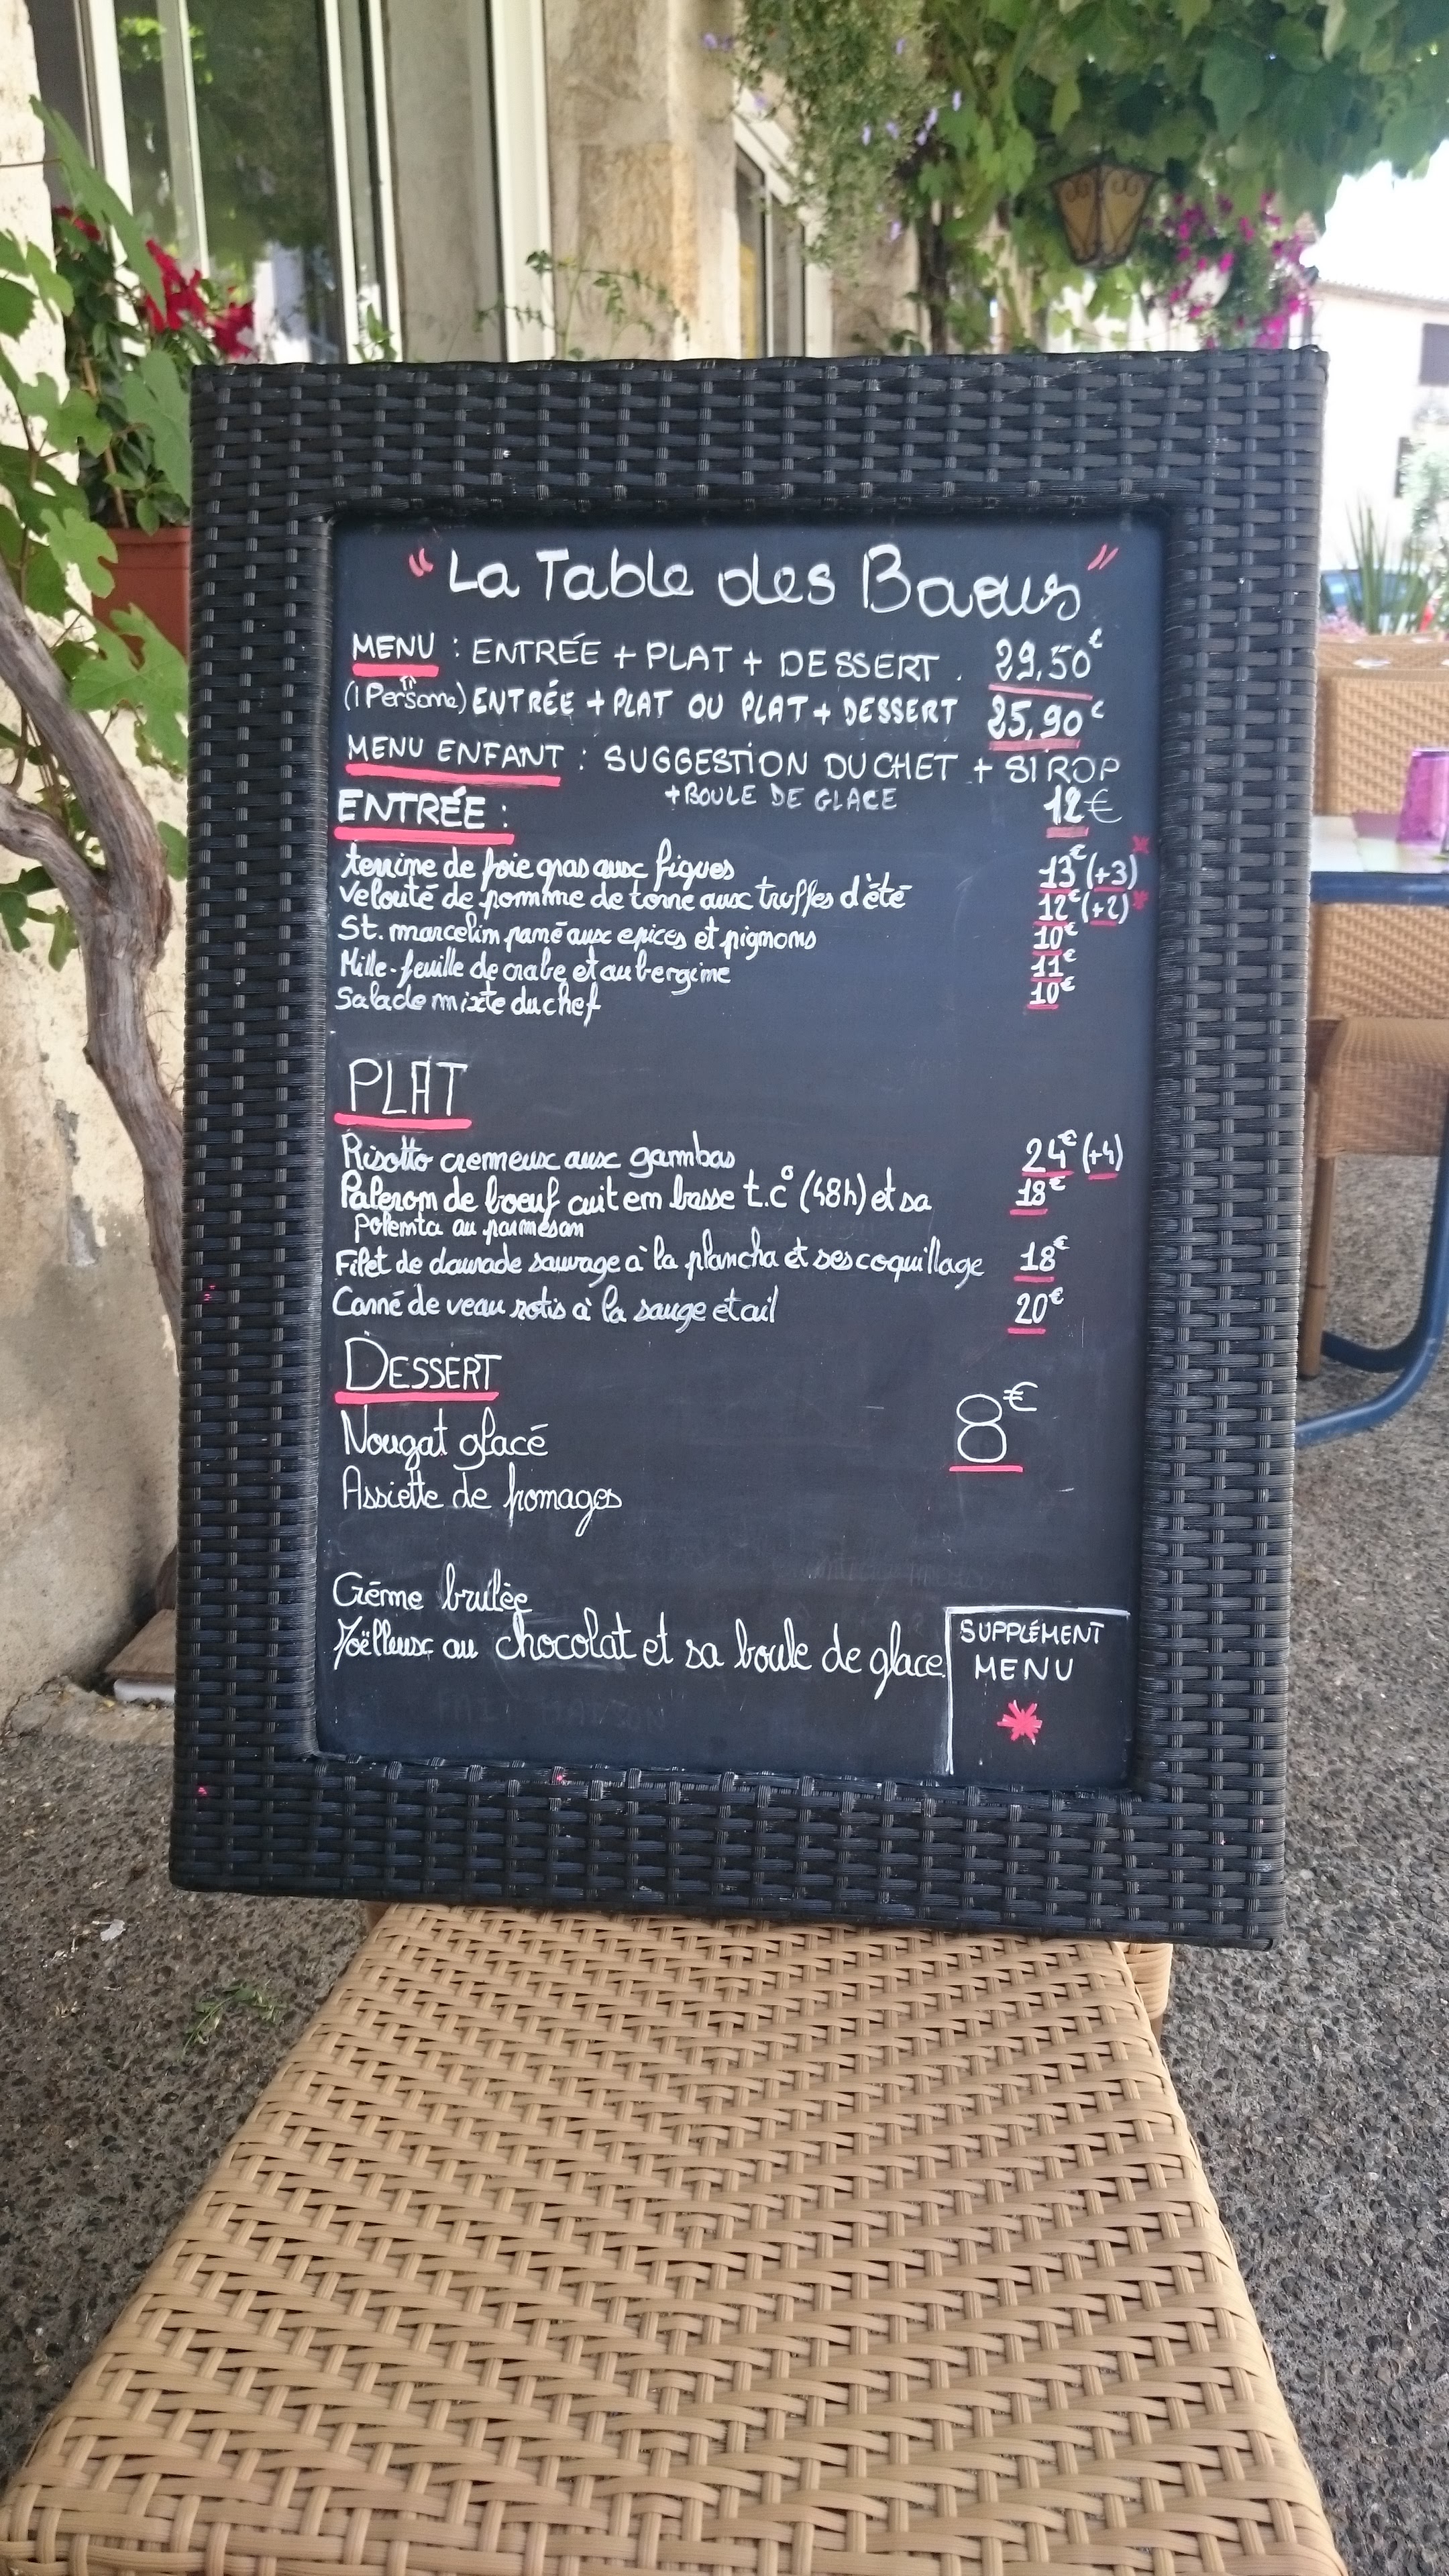 " La Table des Baous "
MENU : ENTRÉE + PLAT + DESSERT . 29,50€
(1 Personne) ENTRÉE + PLAT OU PLAT + DESSERT 25,90€
MENU ENFANT : SUGGESTION DU CHEF + SIROP
+ BOULE DE GLACE 12€
ENTRÉE :
terrine de foie gras aux figues 13€ (+3) *
velouté de pomme de terre aux truffes d'été 12€ (+2) *
St. marcelin pané aux epices et pignons 10€
Mille-feuille de crabe et aubergine 11€
Salade mixte du chef 10€
PLAT
Risotto cremeux aux gambas 24€ (+4)
Paleron de boeuf cuit en basse t.c° (48h) et sa 18€
polenta au parmesan
Filet de daurade sauvage à la plancha et ses coquillage 18€
Carré de veau rotis à la sauge et ail 20€
DESSERT
8€
Nougat glacé
Assiette de fromages
Créme brulée
Moëlleux au chocolat et sa boule de glace
SUPPLÉMENT
MENU
*